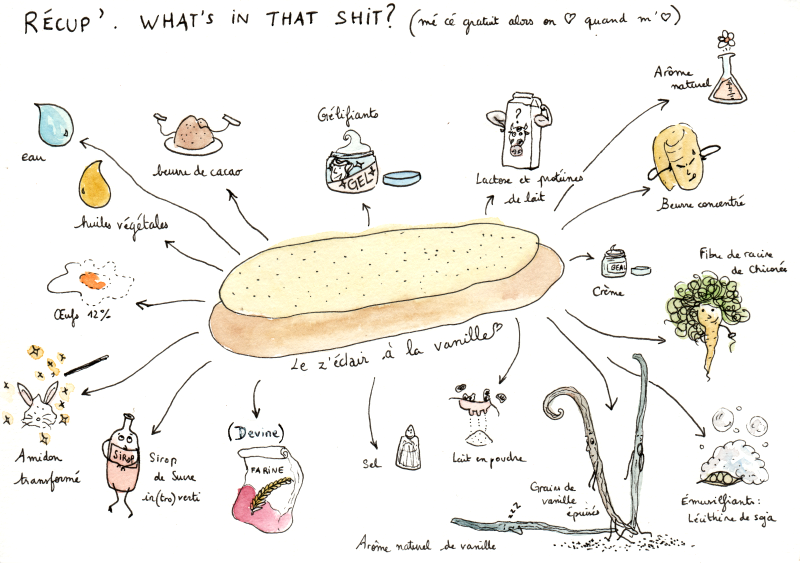 RÉCUP'. WHAT'S IN THAT SHIT? (mé cé gratuit alors on ♡ quand m'♡)
Arôme
naturel
Gélifiants
eau
beurre de cacao
GEL
?
Lactose et protéines
de lait
Beurre concentré
huiles végétales
Fibre de racine
de Chicorée
Crème
Œufs 12%
Le z'éclair à la vanille♡
Amidon
transformé
SIROP
Sirop
de Sucre
in(tro)verti
(Devine)
FARINE
Sel
Lait en poudre
Grains de
vanille
épuisés
zzz
Arôme naturel de vanille
Émulsifiants:
Lécithine de soja